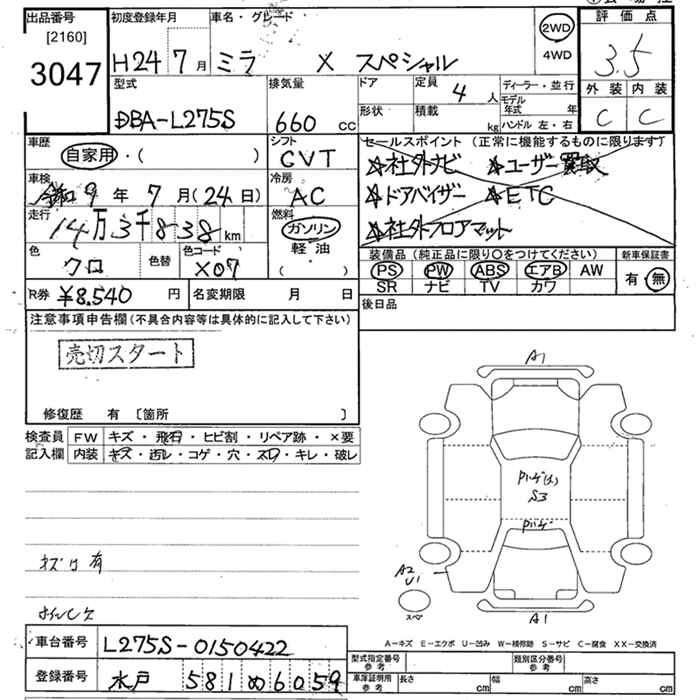 出品番号
[2160]
3047
初度登録年月
H24 7月
車名・グレード
ミラ X スペシャル
2WD
4WD
評価点
3.5
外装 内装
C C
型式
DBA-L275S
排気量
660 CC
ドア
定員 4 人
形状
積載 kg
ディーラー・並行
モデル年式 年
ハンドル 左・右
車歴
自家用・( )
シフト
CVT
セールスポイント(正常に機能するものに限ります)
☆社外ナビ ☆ユーザー買取
☆ドアバイザー ☆ETC
☆社外フロアマット
車検
令和9年7月(24日)
冷房
AC
走行
14万3千838km
燃料
ガソリン
軽・油
( )
色
クロ
色替
色コード
X07
装備品(純正品に限り○をつけてください)
PS PW ABS エアB AW
SR ナビ TV カワ
新車保証書
有・無
R券 ¥8,540円
名変期限 月 日
後日品
注意事項申告欄(不具合内容等は具体的に記入して下さい)
売切スタート
修復歴 有 〔箇所 〕
検査員記入欄
FW キズ・飛石・ヒビ割・リペア跡・×要
内装 キズ・汚レ・コゲ・穴・スレ・キレ・破レ
キズ凹有
A1
S3
A2
U1
スペ
A1
A-キズ E-エクボ U-凹み W-補修跡 S-サビ C-腐食 XX-交換済
車台番号 L275S-0150422
登録番号 水戸 581 め 6059
型式指定番号 参考
類別区分番号 参考
車庫証明用 参考
長さ cm
幅 cm
高さ cm